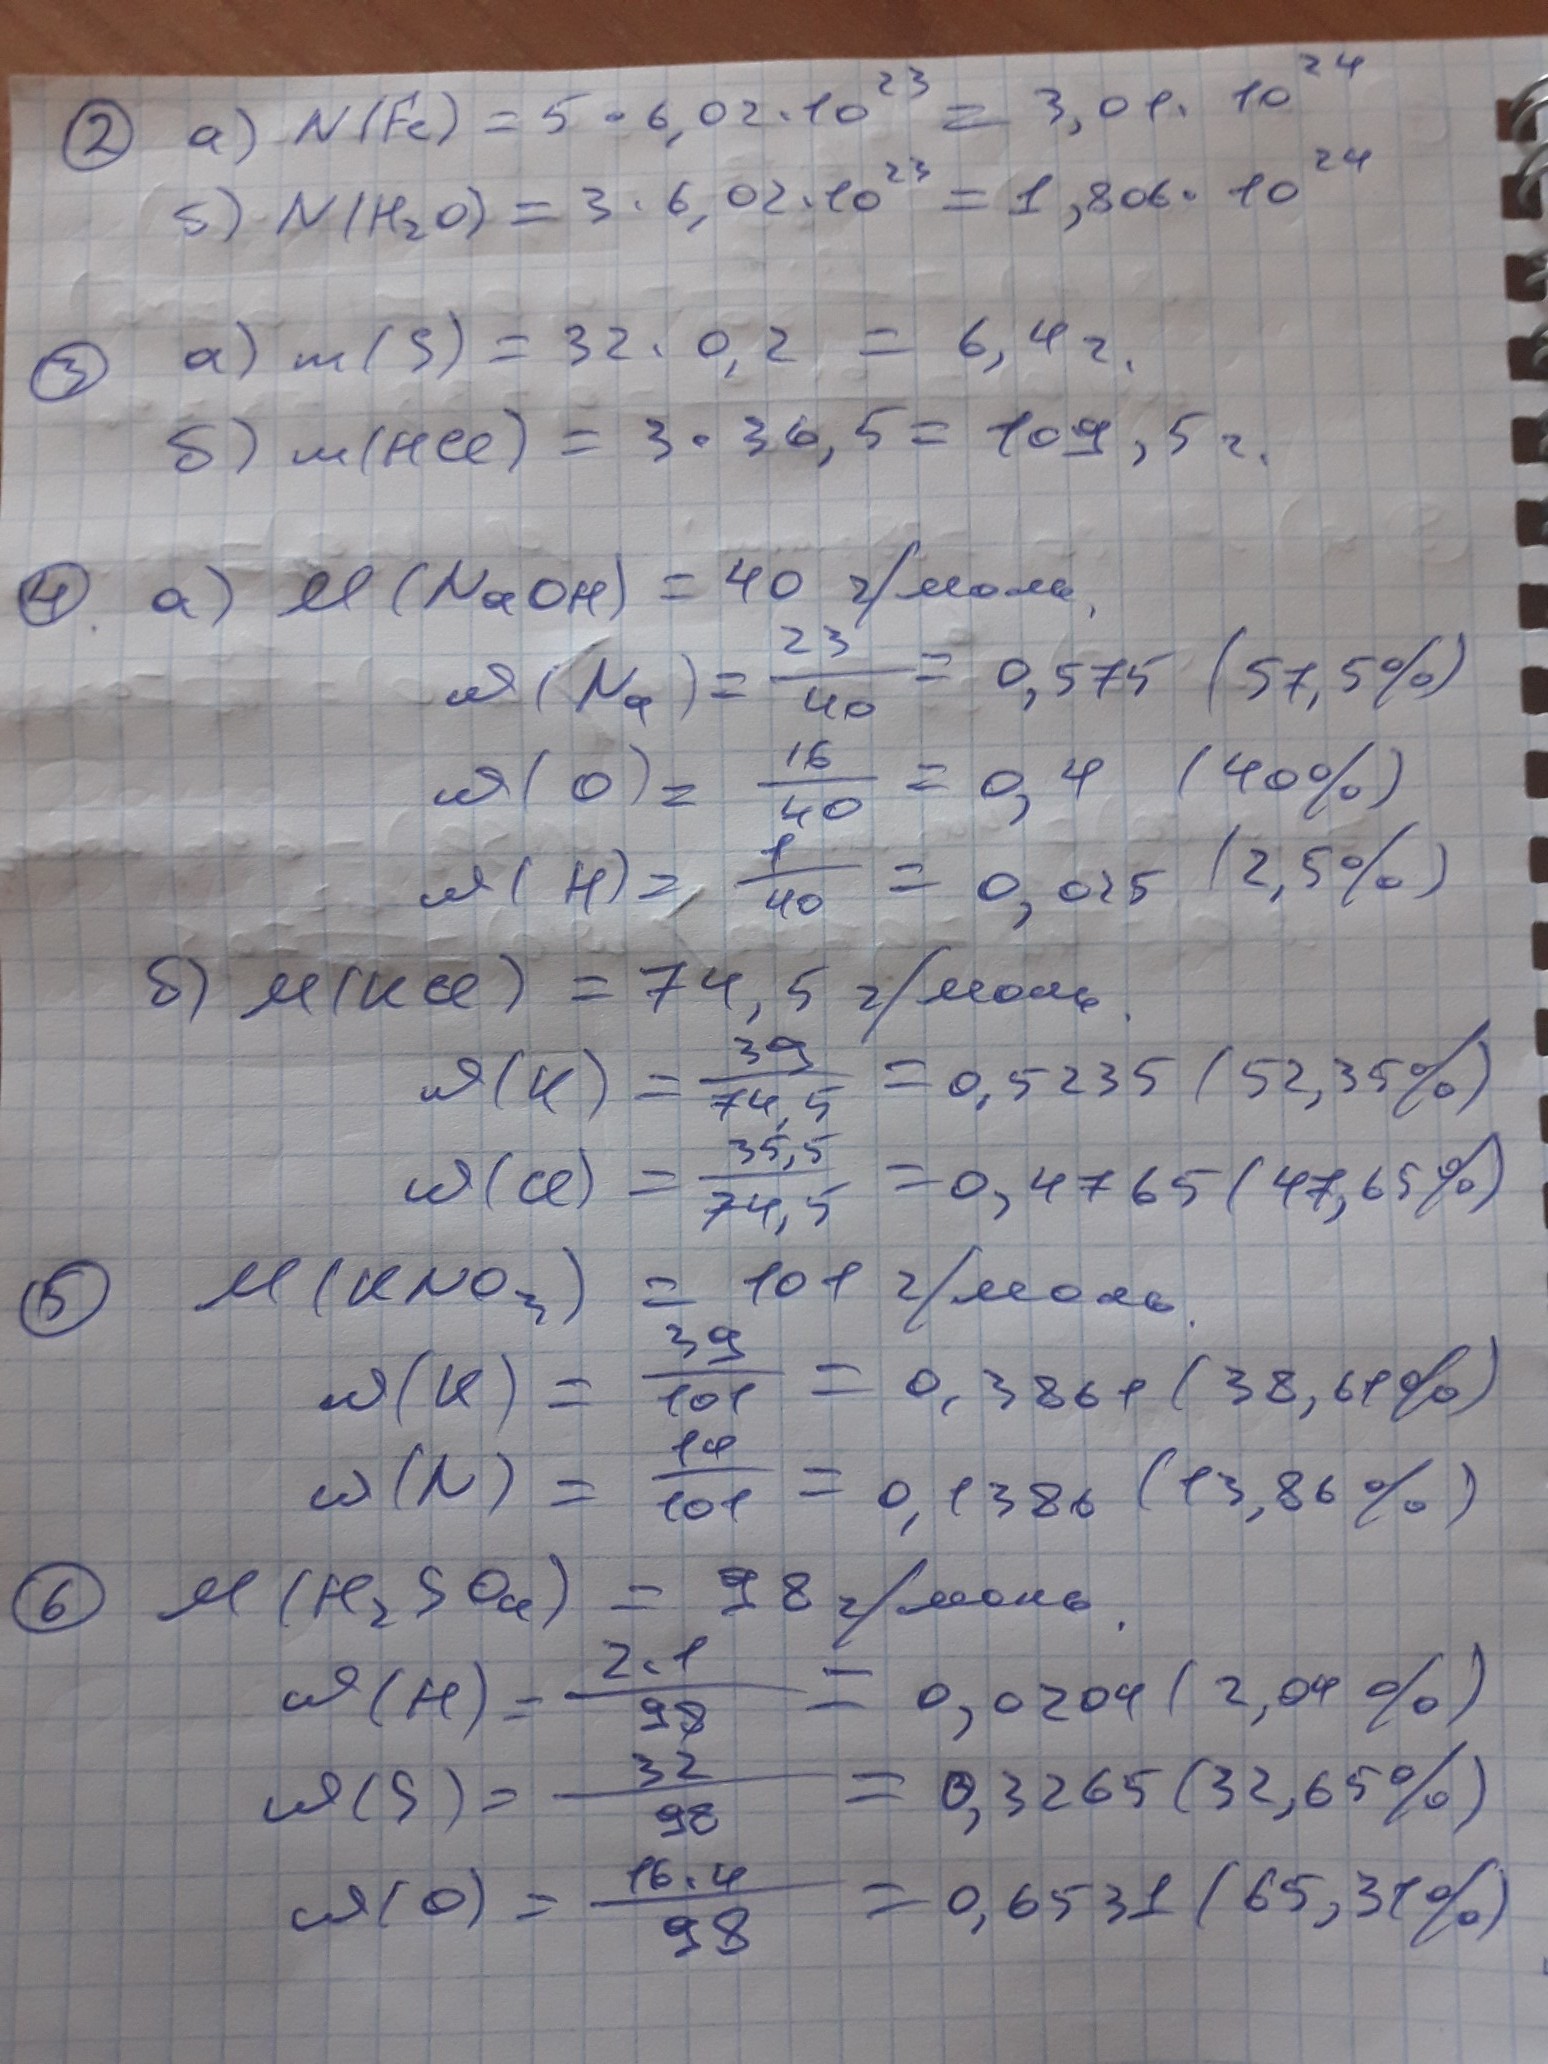 ② а) N(Fe) = 5 · 6,02 · 10²³ = 3,01 · 10²⁴
б) N(H₂O) = 3 · 6,02 · 10²³ = 1,806 · 10²⁴
③ а) m(S) = 32 · 0,2 = 6,4 г.
б) m(HCl) = 3 · 36,5 = 109,5 г.
④ а) M(NaOH) = 40 г/моль.
ω(Na) = 23/40 = 0,575 (57,5%)
ω(O) = 16/40 = 0,4 (40%)
ω(H) = 1/40 = 0,025 (2,5%)
б) M(KCl) = 74,5 г/моль.
ω(K) = 39/74,5 = 0,5235 (52,35%)
ω(Cl) = 35,5/74,5 = 0,4765 (47,65%)
⑤ M(KNO₃) = 101 г/моль.
ω(K) = 39/101 = 0,3861 (38,61%)
ω(N) = 14/101 = 0,1386 (13,86%)
⑥ M(H₂SO₄) = 98 г/моль.
ω(H) = 2·1/98 = 0,0204 (2,04%)
ω(S) = 32/98 = 0,3265 (32,65%)
ω(O) = 16·4/98 = 0,6531 (65,31%)